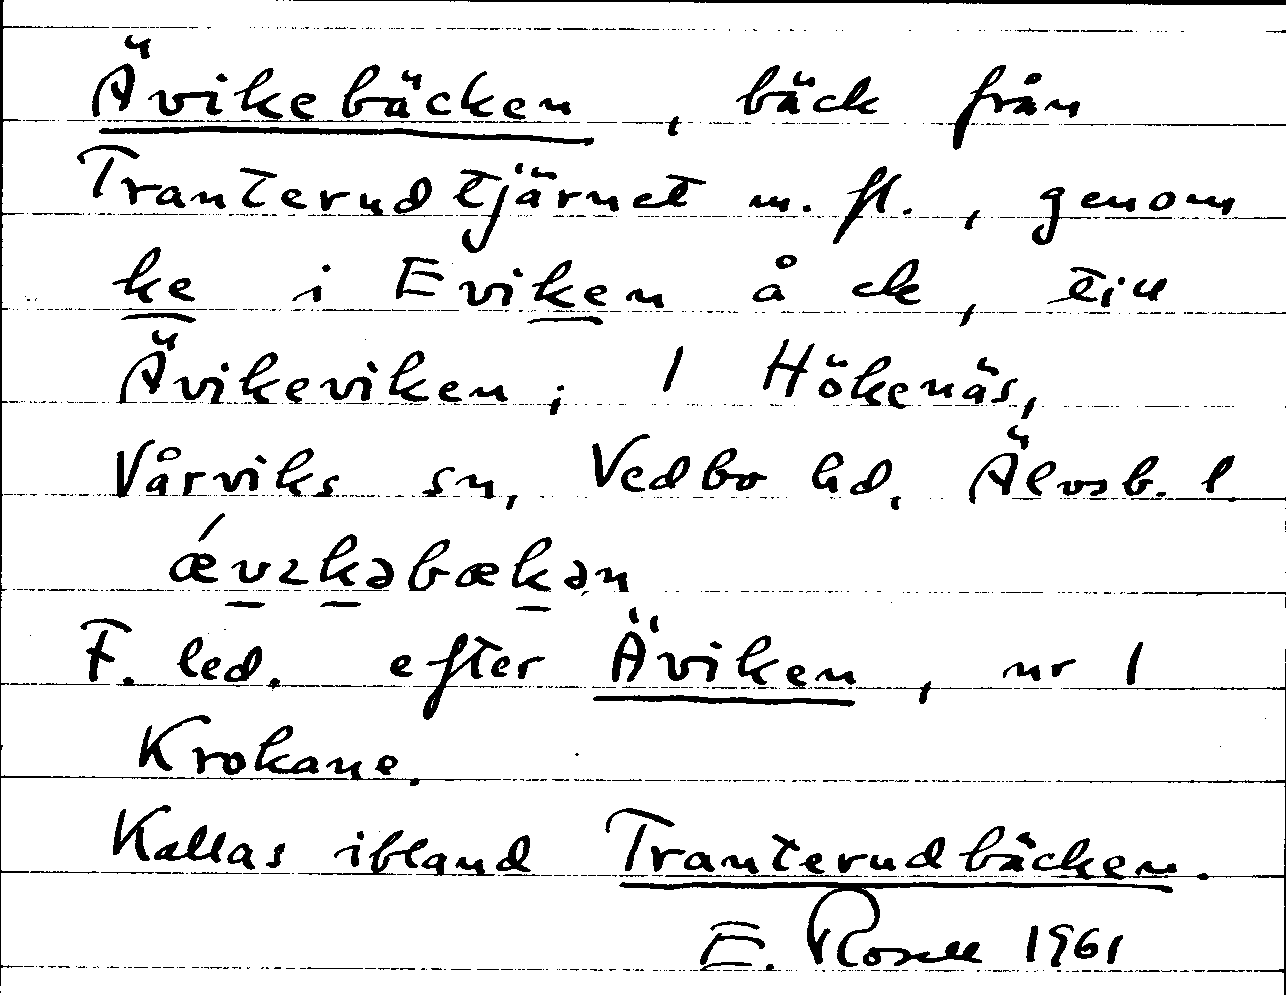 Ävikebäcken, bäck från
Tranterudtjärnet m. fl., genom
ke i Eviken å ek, till
Ävikeviken; 1 Hökenäs,
Vårviks sn, Vedbo hd. Älvsb. l.
ǽvɩkəbækən
F. led. efter Äviken, nr 1
Krokane.
Kallas ibland Tranterudbäcken.
E. Rosell 1961